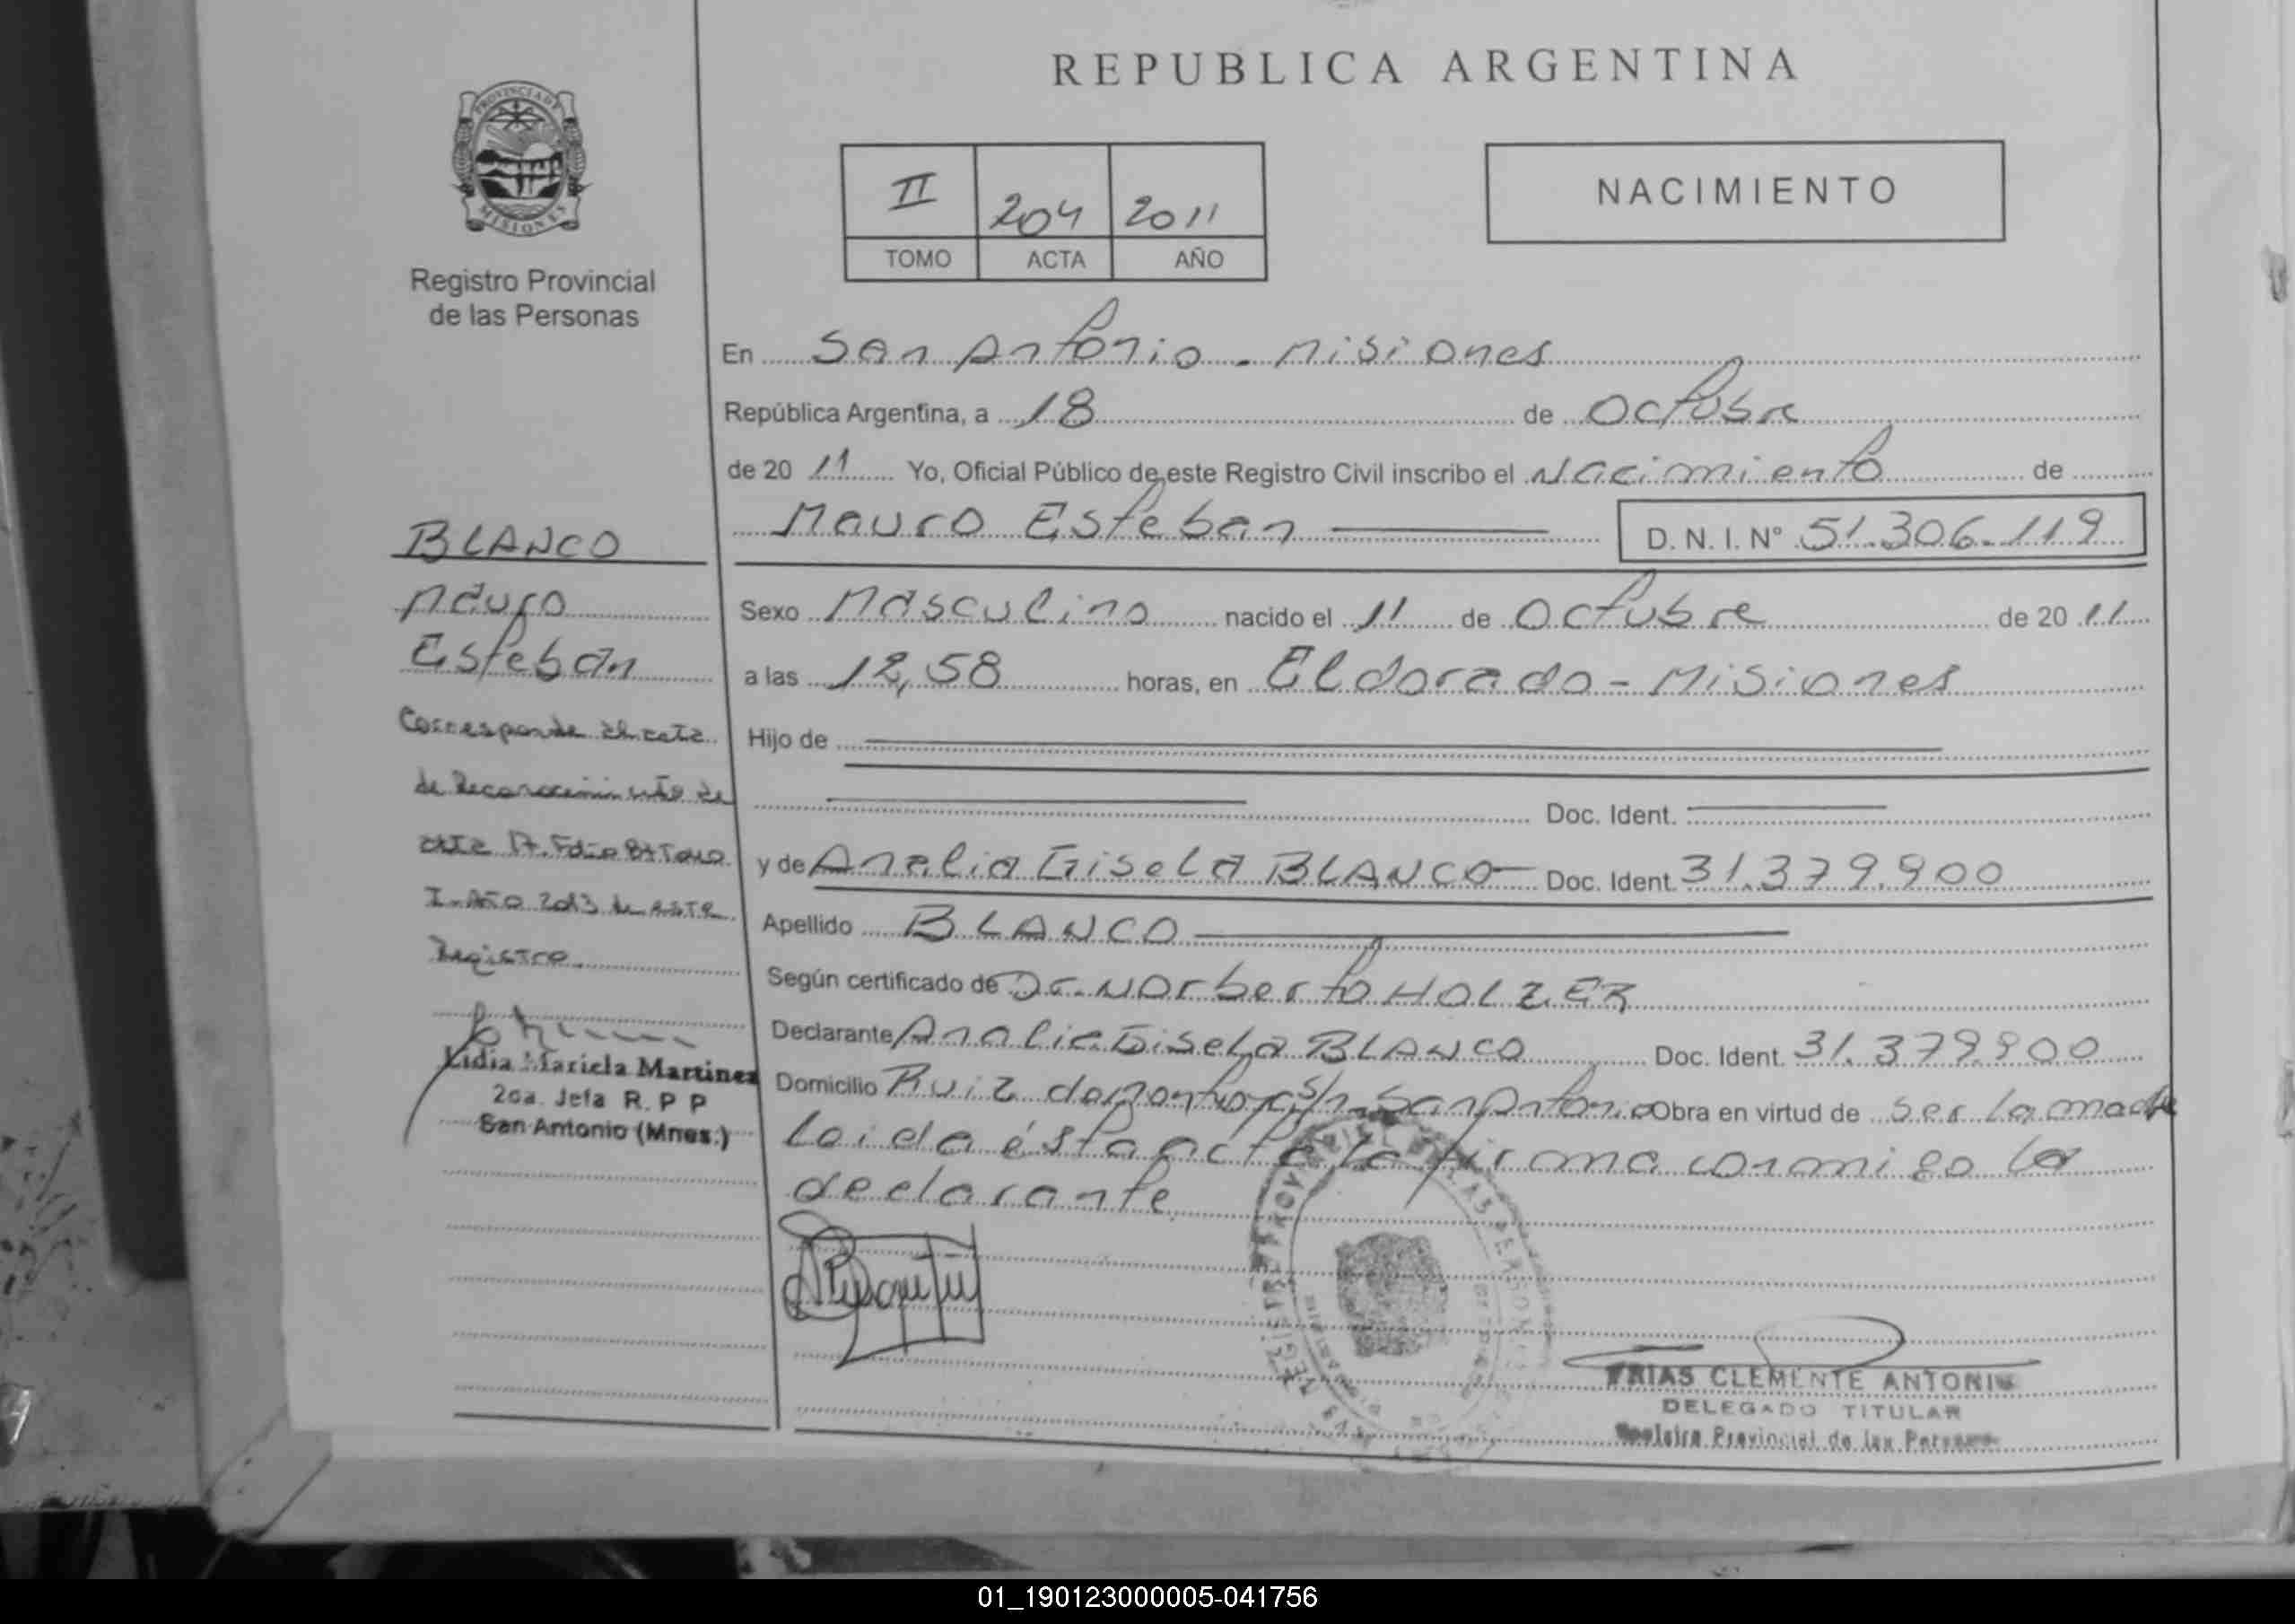 REPUBLICA ARGENTINA
PROVINCIA DE
MISIONES
Registro Provincial
de las Personas
II 204 2011
TOMO ACTA AÑO
NACIMIENTO
En San Antonio - Misiones
República Argentina, a 18 de Octubre
de 20 11 Yo, Oficial Público de este Registro Civil inscribo el Nacimiento de
Mauro Esteban D. N. I. N° 51.306.119
Sexo Masculino nacido el 11 de Octubre de 20 11
a las 12,58 horas, en Eldorado - Misiones
Hijo de
Doc. Ident.
y de Analia Gisela BLANCO Doc. Ident. 31.379.900
Apellido BLANCO
Según certificado de Dr. Norberto HOLZER
Declarante Analia Gisela BLANCO Doc. Ident. 31.379.900
Domicilio Ruiz de Montoya s/n San Antonio Obra en virtud de ser la madre
Leida ésta acta, la firma conmigo la
declarante
BLANCO
Mauro
Esteban
Corresponde al acta
de Reconocimiento de
Folio 84 Tomo
I - Año 2013 de este
Registro.
Lidia Mariela Martinez
2da. Jefa R. P P
San Antonio (Mnes.)
FRIAS CLEMENTE ANTONIO
DELEGADO TITULAR
Registro Provincial de las Personas
01_190123000005-041756